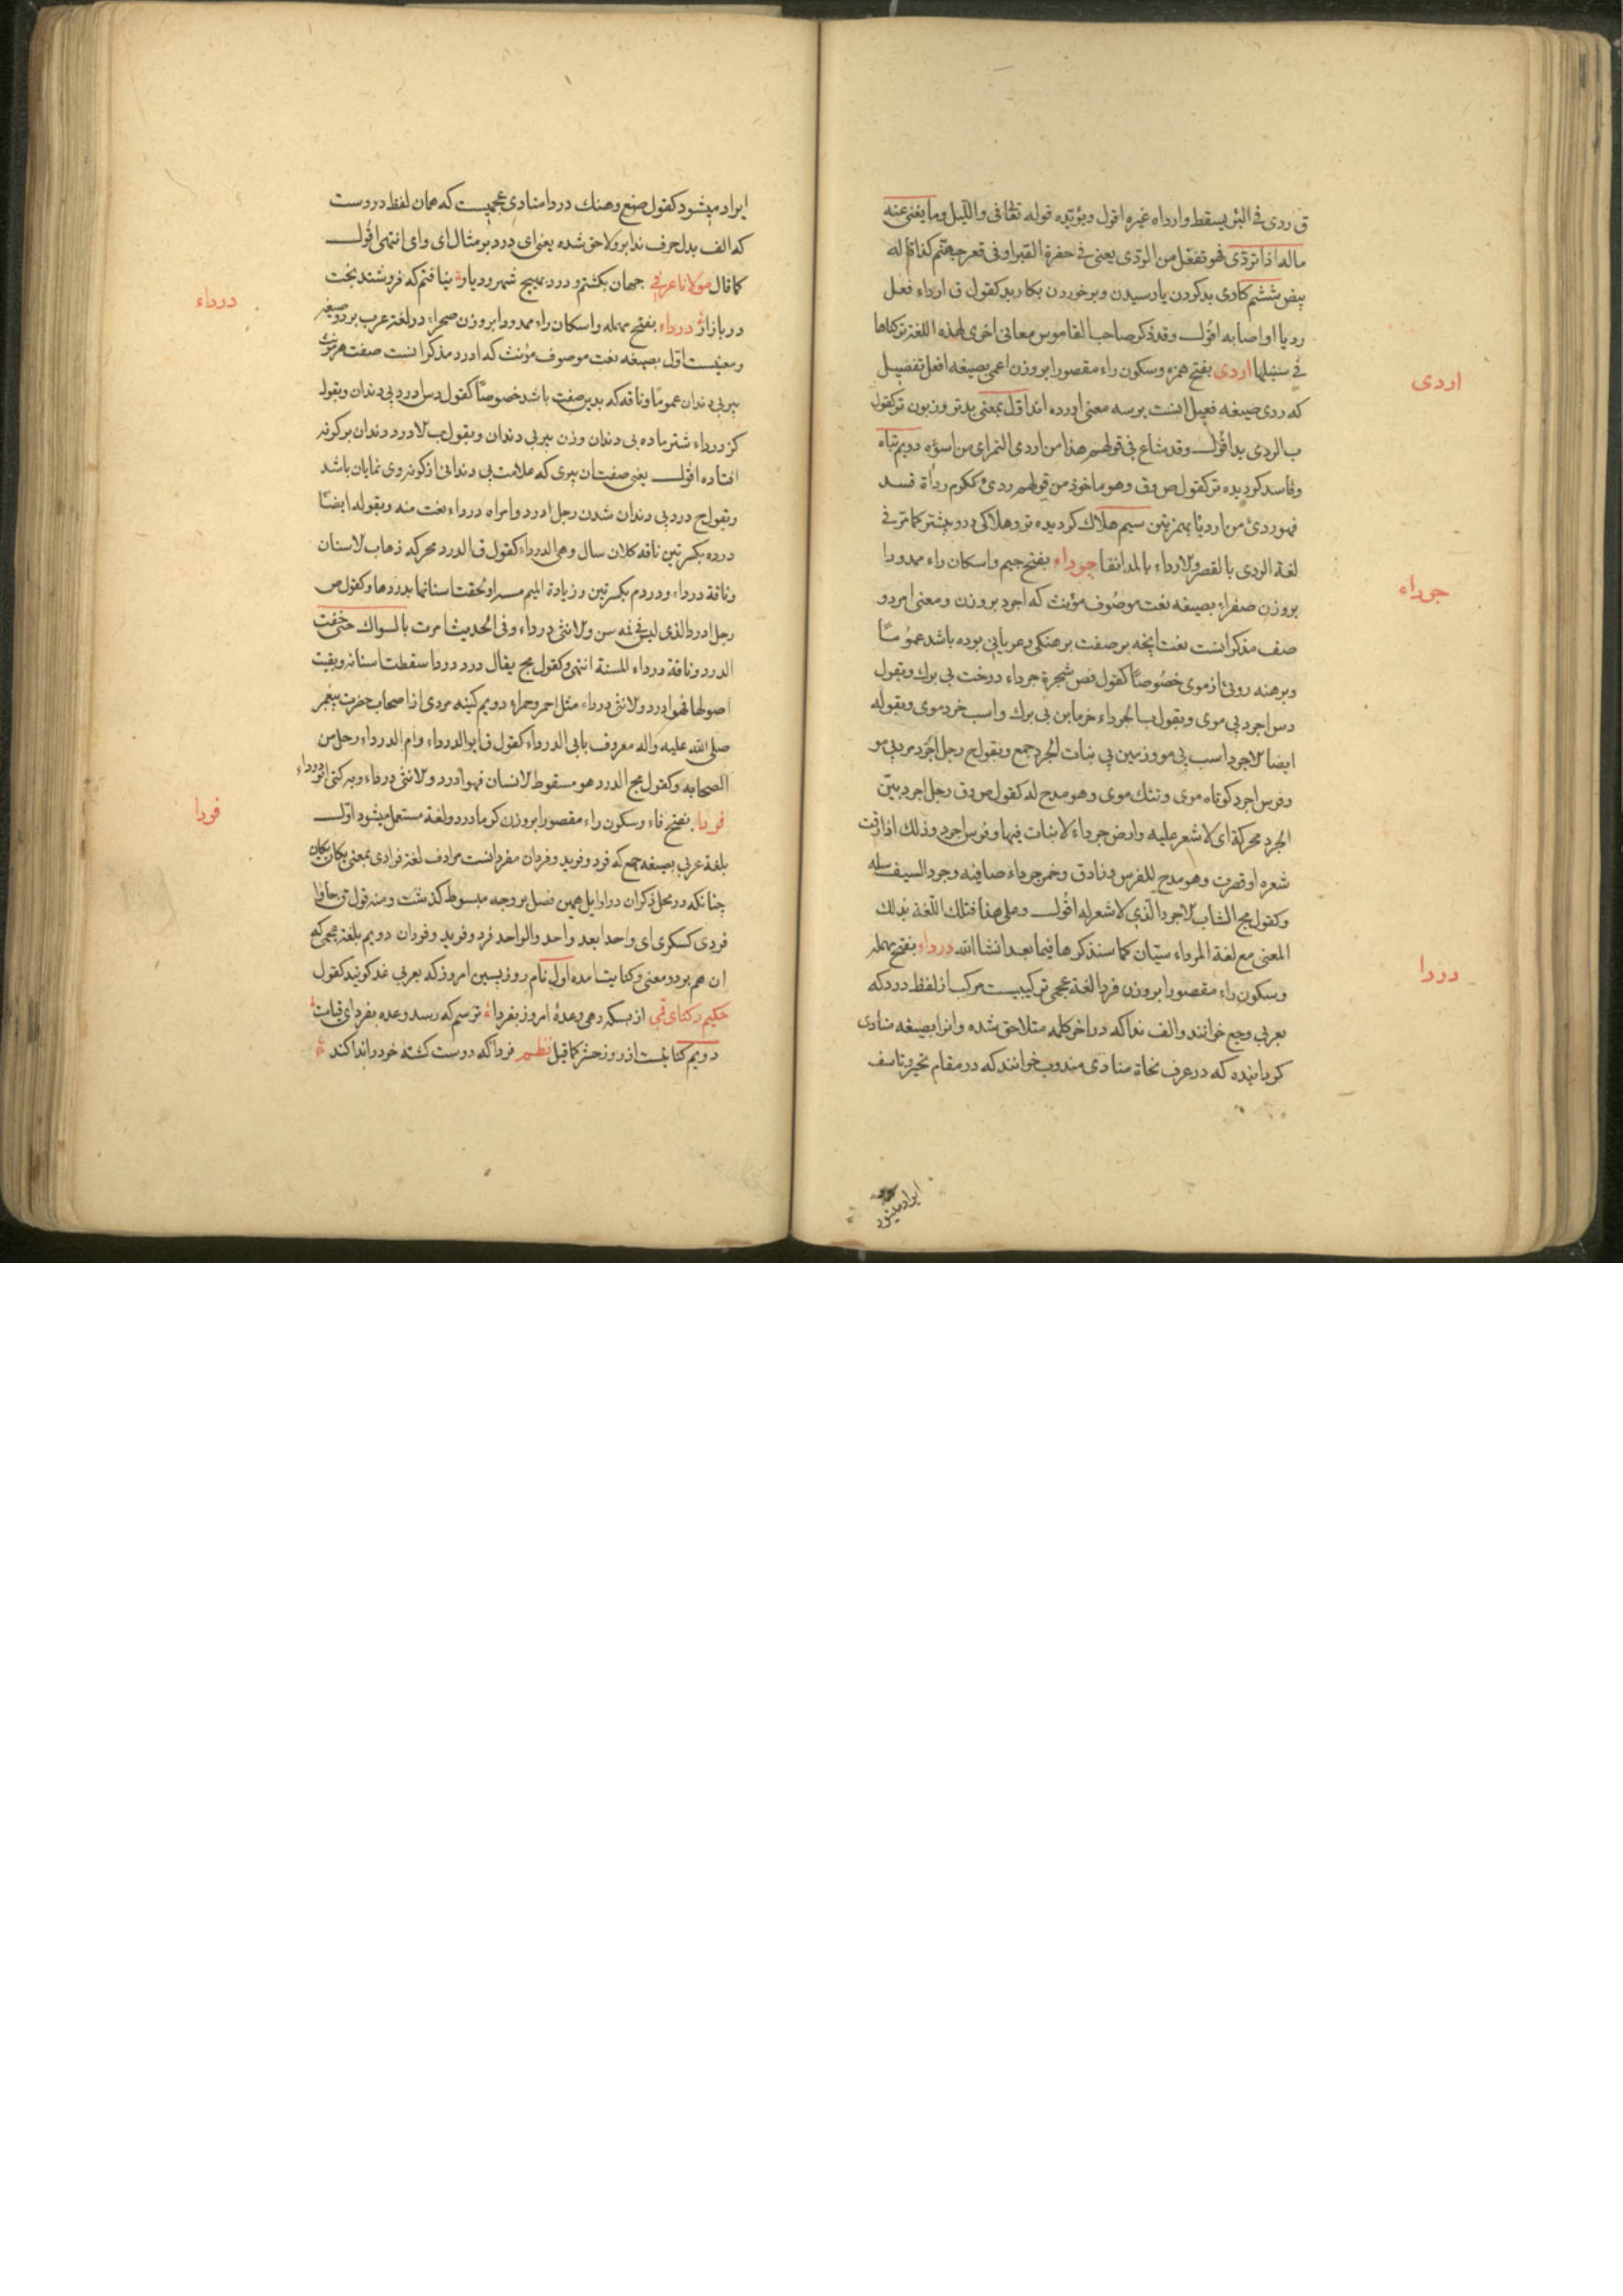 ق ردی فی البئر یسقط وارداه غیره اقول ویؤیده قوله تعالی واللیل وما یغنی عنه
ماله اذا تردّی فهو تفعّل من الردّی یعنی فی حفرة القبر او فی قعر جهنّم کذا قاله
بیض ششم کاری بد کردن یا رسیدن و برخوردن بکار بد کقول ق ارداء فعل
ردیا او اصابه اقول وقد ذکر صاحب القاموس معانی اخری لهذه اللغة ترکناها
فی سنبلها اردی بفتح همزه وسکون راء مقصورا بروزن اعمی بصیغه افعل تفضیل
اردی
که ردی صیغه فعیل انست برسه معنی اورده اند اوّل بمعنی بدتر وزبون تر کقول
ب الردی بد اقول وقد شاع فی قولهم هذا من اردی التمر ای من اسؤه دویم تباه
وفاسد کردیده تر کقول ص وق وهو ماخوذ من قولهم ردئ ککرم رداة فسد
فهو ردئ من اردیاء بهمزتین سیم هلاک کردیده تر وهلاکی درو بیشتر کما تر فی
لغة الردی بالقصر والارداء بالمد انفا جرداء بفتح جیم واسکان راء ممدودا
جرداء
بروزن صفراء بصیغه نعت موصوف مؤنث که اجرد بروزن ومعنی امرد و
صف مذکر انست نعت انچه بر صفت برهنکی وعریانی بوده باشد عموما
وبرهنه روئی از موی خصوصا کقول فص شجرة جرداء درخت بی برک وبقول
دس اجرد بی موی وبقول ب الجرداء خرمابن بی برک واسب خردموی وبقوله
ایضا الاجرد اسب بی مو وزمین بی نبات الجرد جمع وبقول ج رجل اجرد مردبی مو
وفرس اجرد کوتاه موی وتنک موی وهو مدح له کقول ص وق رجل اجرد بیّن
الجرد محرکة ای لا شعر علیه وارض جرداء لا نبات فیها وفرس اجرد وذلک اذا رقت
شعره او قصرت وهو مدح للفرس وخمر جرداء صافیه وجرد السیف سله
وکقول مج الشاب الاجرد الّذی لا شعر له اقول وعلی هذا فتلک اللّغة بذلک
المعنی مع لغة المرداء سیّان کما سنذکرها فیما بعد انشا الله دردا بفتح مهمله
وسکون راء مقصورا بروزن فردا لغة عجمی ترکیبیست مرکب از لفظ درد که
دردا
بعربی وجع خوانند والف ندا که در اخر کلمه مثلا حق شده وانرا بصیغه منادی
کردانیده که در عرف نحاة منادی مندوب خوانند که در مقام تحیر وتاسف
ایراد میشود
ایراد میشود کقول صنع وهنک دردا منادی عجمیست که همان لفظ دردست
که الف بدل حرف ندا برو لاحق شده یعنی ای درد بر مثال ای وای انتهی اقول
کما قال مولانا عرفی جهان بکشتم و درد بهیچ شهر و دیار نیافتم که فروشند بخت
در بازار درداء بفتح مهمله واسکان راء ممدودا بروزن صحراء در لغة عرب بر دو صیغه
درداء
ومعنیست اوّل بصیغه نعت موصوف مؤنث که ادرد مذکر انست صفت هر مؤنث
پیر بی دندان عموما وناقه که بدین صفت باشد خصوصا کقول دس ادرد بی دندان وبقول
کز درداء شتر ماده بی دندان وزن پیر بی دندان وبقول ب الادرد دندان بر کونه
افتاده اقول یعنی صفت ان پیری که علامت بی دندانی از کونه روی نمایان باشد
وبقول ج درد بی دندان شدن رجل ادرد وامراه درداء نعت منه وبقوله ایضا
درده بکسرتین ناقه کلان سال وهی الدرداء کقول ق الدرد محرکه ذهاب الاسنان
وناقة درداء ودردم بکسرتین وزیادة المیم مسنه او لحقت اسنانها بدردها وکقول ص
رجل ادرد الذی لیس فی فمه سن والانثی درداء وفی الحدیث امرت بالسواک حتی خفت
الدرد وناقة درداء المسنة انتهی وکقول مج یقال درد دردا سقطت اسنانه وبقیت
اصولها فهو ادرد والانثی درداء مثل احمر وحمراء دویم کنیه مردی از اصحاب حضرت پیغمبر
صلی الله علیه واله معروف بابی الدرداء کقول ق ابو الدرداء وام الدرداء رجل من
الصحابه وکقول مج الدرد هو مسقوط الانسان فهو ادرد والانثی درداء وبه کنی ابو درداء
فردا بفتح فاء وسکون راء مقصورا بروزن کرما در دو لغة مستعمل میشود اوّل
فردا
بلغة عربی بصیغه جمع که فرد وفرید وفردان مفرد انست مرادف لغة فرادی بمعنی یکان یکان
چنانکه در محل ذکر ان در اوایل همین فصل بر وجه مبسوط گذشت ومنه قول ق جاؤا
فردی کسکری ای واحدا بعد واحد والواحد فرد وفرید وفردان دویم بلغة عجمی که
ان هم بر دو معنی وکنایت امده اول نام روز پسین امروز که بعربی غد کویند کقول
حکیم رکنای قمی از بسکه دهی وعدهٔ امروز بفردا ترسم که رسد وعده بفردای قیامت
دویم کنایت از روز حشر کما قیل نظم فردا که دوست کشته خود را ندا کند